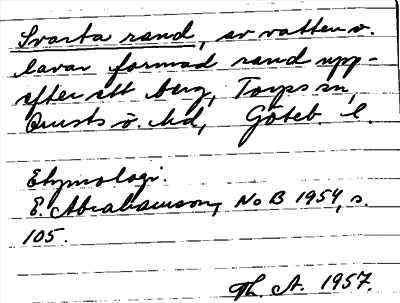 Svarta rand, av vatten o.
lavar formad rand upp-
efter ett berg, Torps sn,
Orusts ö. hd, Göteb. l.
Etymologi.
E. Abrahamson, NoB 1954, s.
105.
Th. A. 1957.